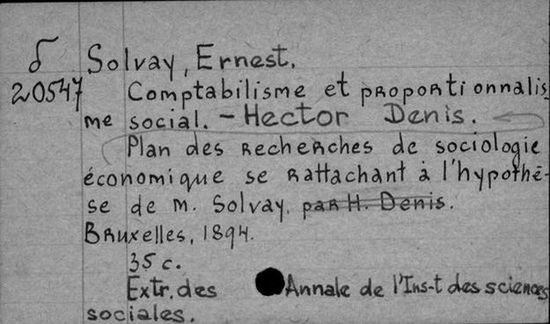 δ Solvay, Ernest.
20547 Comptabilisme et proportionnalis
me social. - Hector Denis.
Plan des recherches de sociologie
économique se rattachant à l'hypothè-
se de M. Solvay. par H. Denis.
Bruxelles, 1894.
35 c.
Extr. des Annale de l'Ins-t des sciences
sociales.